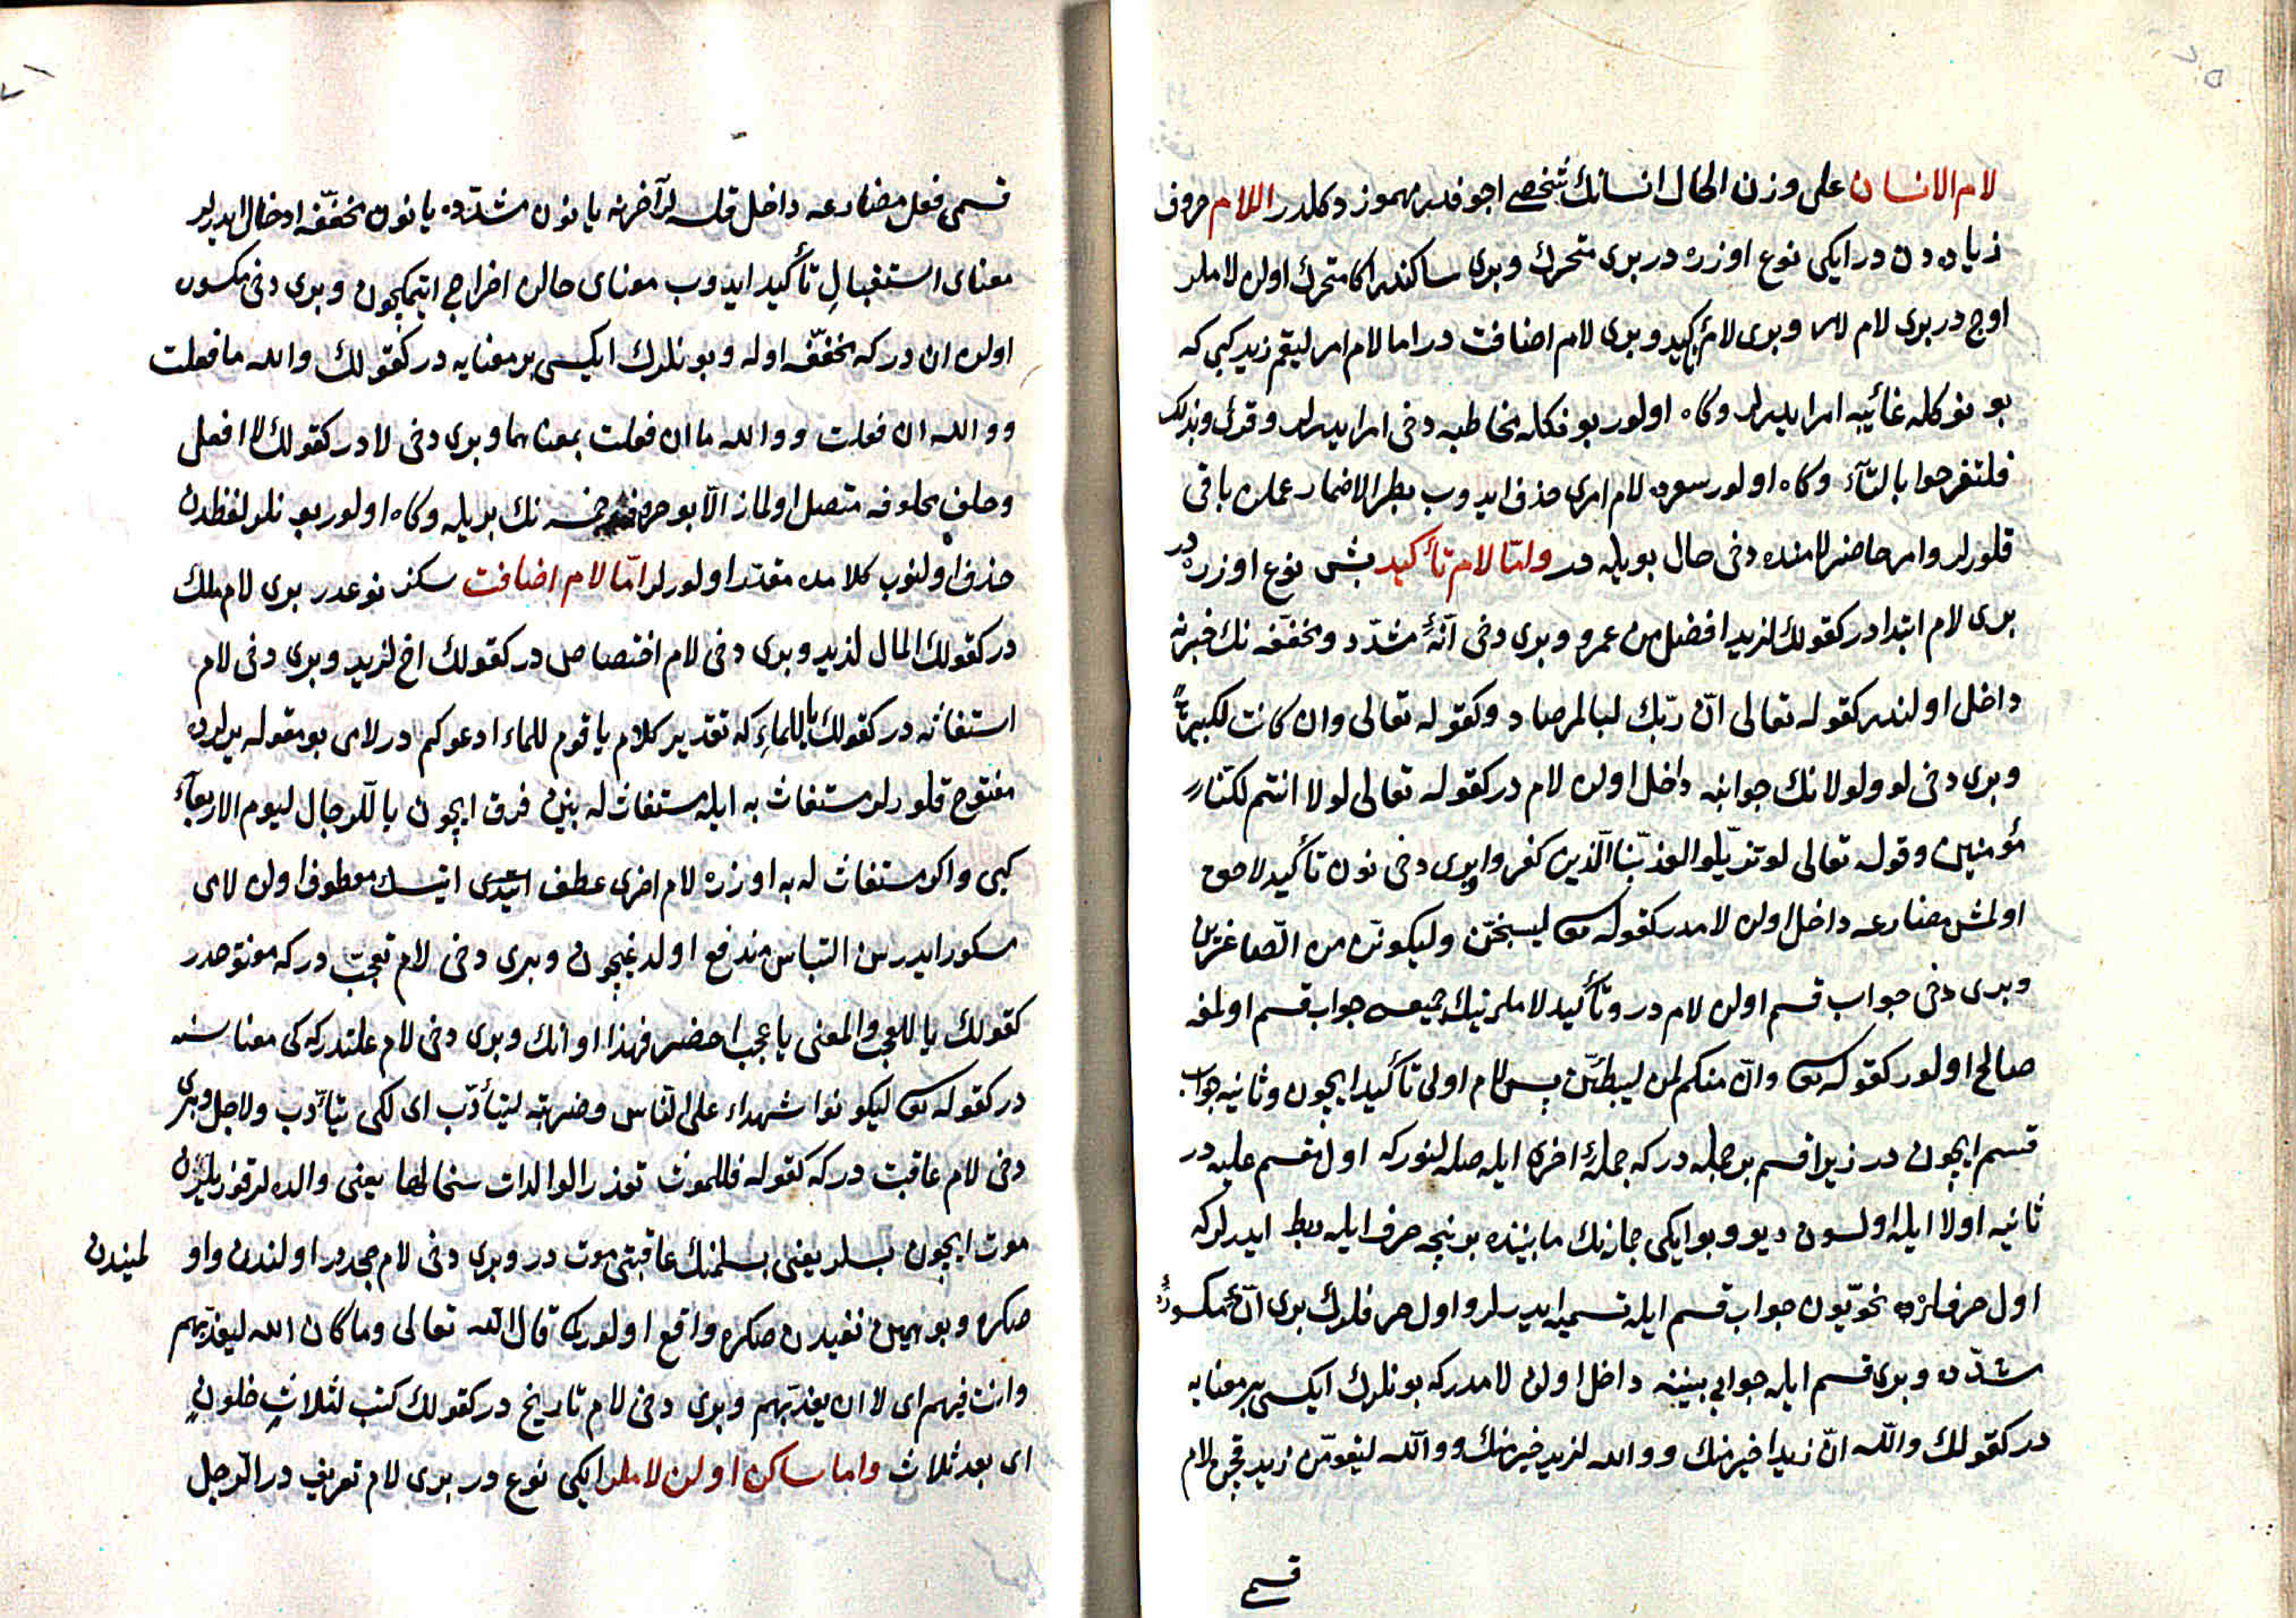 لام الانسان على وزن الحال انسانك شخصى اجوفدر مهموز دكلدر اللام حروف
زياده دن در ايكى نوع اوزره در برى متحرك وبرى ساكندر اما متحرك اولن لاملر
اوچ در برى لام امر وبرى لام تأكيد وبرى لام اضافت در اما لام امر ليقم زيد كبى كه
بونوكله غائبه امر ايدرلر وكاه اولور بونكله مخاطبه دخى امر ايدرلر وقرئ وبذلك
فلتفرحوا بالتآء وكاه اولور سعرده لام امرى حذف ايدوب بطرالاضمار عملن باقى
قلورلر وامر حاضر لامنده دخى حال بويله در وامّا لام تأكيد بش نوع اوزره در
برى لام ابتدا در كقولك لزيد افضل من عمرو وبرى دخى انّ مشدّد ومخفّفه نك خبرنه
داخل اولندر كقوله تعالى انّ ربّك لبالمرصاد وكقوله تعالى وان كانت لكبيرةً
وبرى دخى لو ولولانك جوابنه داخل اولن لام در كقوله تعالى لولا انتم لكنّا
مؤمنين وقوله تعالى لو تزيّلوا لعذّبنا الّذين كفروا وبرى دخى نون تأكيد لاحق
اولمش مضارعه داخل اولن لامدر كقوله تعالى ليسجننّ وليكونن من الصّاغرين
وبرى دخى جواب قسم اولن لام در وتأكيد لاملرينك جميعسى جواب قسم اولمغه
صالح اولور كقوله تعالى وانّ منكم لمن ليبطّئنّ پس لام اولى تأكيد ايچون وثانيه جواب
قسم ايچون در زيرا قسم بر جمله در كه جملهٔ اخرى ايله صله لنور كه اول مقسم عليه در
ثانيه اولا ايله اولسون ديو وبو ايكى جمله نك مابيننده بر نيچه حرف ايله ربط ايدرلر كه
اول حرفلره نحويّون جواب قسم ايله تسميه ايديلر واول حرفلرك برى انّ مكسورهٔ
مشدّده وبرى قسم ايله جوابى بيننه داخل اولن لامدر كه بونلرك ايكسى بر معنايه
در كقولك والله انّ زيدا خير منك ووالله لزيد خير منك ووالله ليقومّن زيد قچن لام
قسمى
قسمى فعل مضارعه داخل قلسه لر آخرنه يا نون مشدّده يا نون مخفّفه ادخال ايدرلر
معناى استقبالِ تأكيد ايدوب معناى حالن اخراج ايتمكيچون وبرى دخى مكسوره
اولن ان در كه مخفّفه اوله وبونلرك ايكيسى بر معنايه در كقولك والله ما فعلت
ووالله ان فعلت ووالله ما ان فعلت بمعناهما وبرى دخى لا در كقولك لا افعل
وحلف محلوفه متصل اولماز الّا بو حروف خمسه نك بريله وكاه اولور بو نلر لفظدن
حذف اولنوب كلامده مقدّر اولورلر امّا لام اضافت سكز نوعدر برى لام ملك
در كقولك المال لزيد وبرى دخى لام اختصاص در كقولك اخ لزيد وبرى دخى لام
استغاثه در كقولك يا للماءِ كه تقدير كلام يا قوم للماء ادعوكم در لامى بو مقوله يرلرده
مفتوح قلورلر مستغاث به ايله مستغاث له بينن فرق ايچون يا للّرجال ليوم الاربعآء
كبى واكر مستغاث له به اوزره لام اخرى عطف ايتسك معطوف اولن لامى
مكسور ايدرسن التباس مندفع اولدغيچون وبرى دخى لام تعجّب در كه مفتوحدر
كقولك يا للعجب والمعنى يا عجب احضر فهذا اوانك وبرى دخى لام علتدر كه كى معناسنه
در كقوله تعالى ليكونوا شهداء على النّاس وضربته ليتأدّب اى لكى يتأدّب ولاجل وبرى
دخى لام عاقبت در كه كقوله فللموت تغذر الوالدات سخالها يعنى والده لر قوزيلرن
موت ايچون بسلر يعنى بسلمنك عاقبتى موت در وبرى دخى لام جحددر اولندن واو لميندن
صكره وبو همين نفيدن صكره واقع اولور كما قال الله تعالى وما كان الله ليعذّبهم
وانت فيهم اى لا ان يعذّبهم وبرى دخى لام تاريخ در كقولك كتب لثلاثٍ خلونٍ
اى بعد ثلاث واما ساكن اولن لاملر ايكى نوع در برى لام تعريف در الرّجل